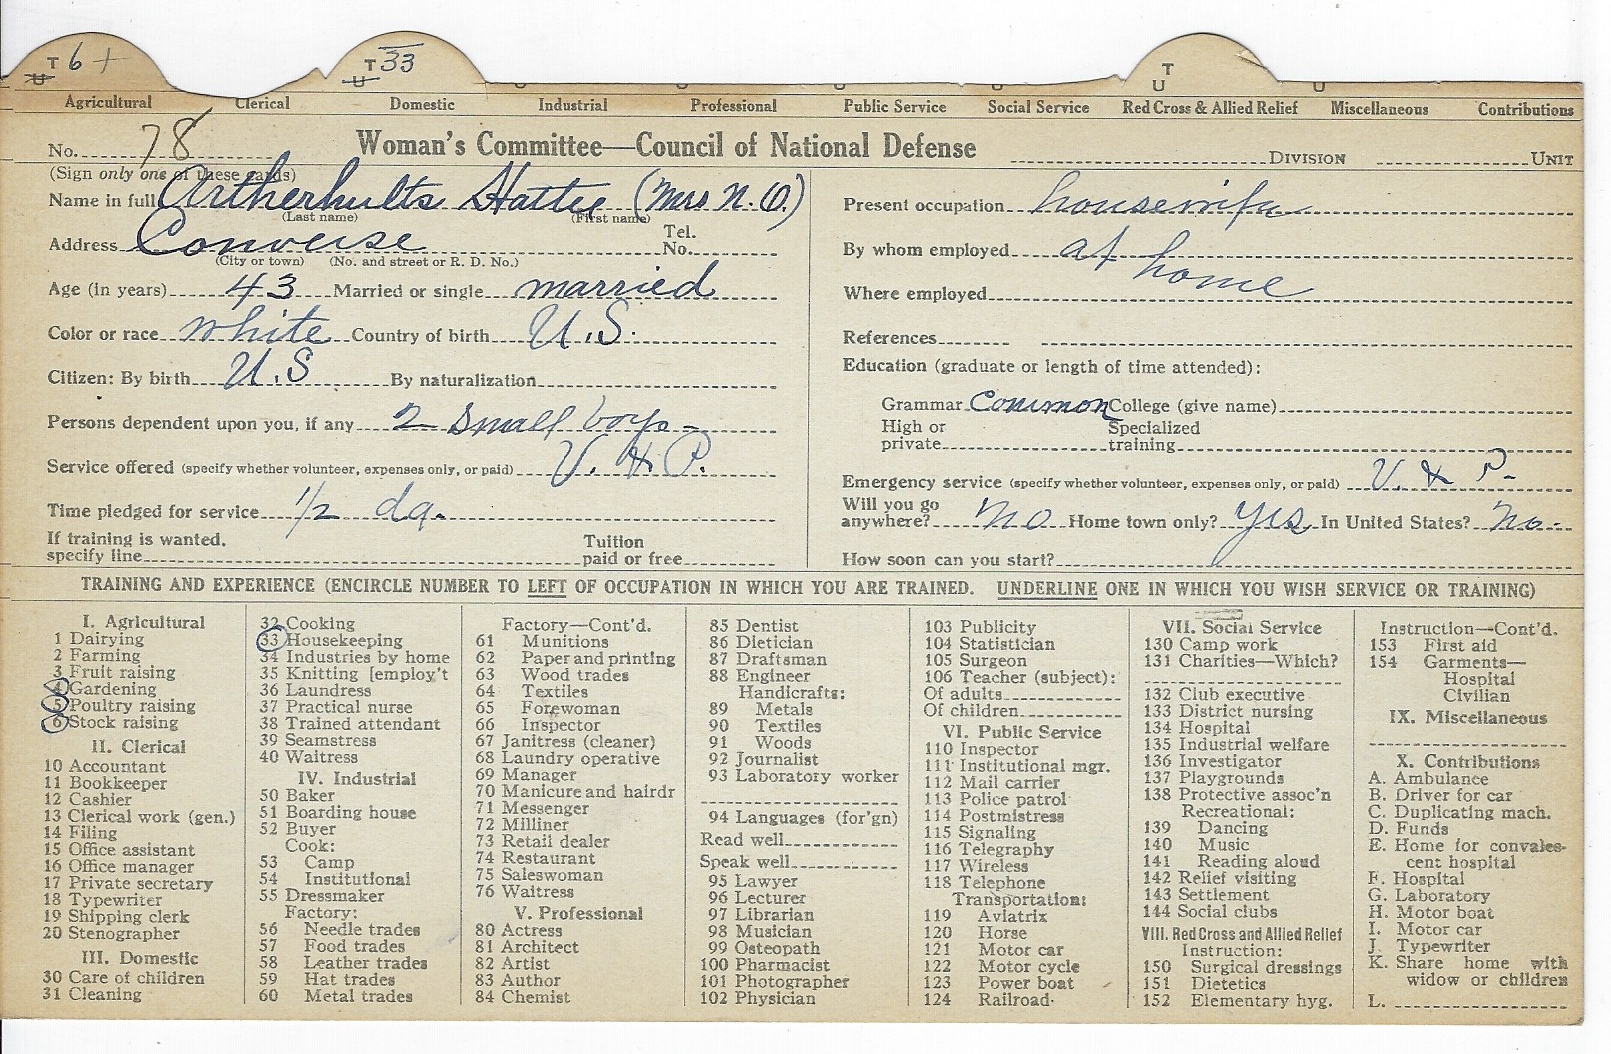 T 6 +
U
T 33
U
T
U
Agricultural Clerical Domestic Industrial Professional Public Service Social Service Red Cross & Allied Relief Miscellaneous Contributions
No. 78 Woman's Committee—Council of National Defense DIVISION UNIT
(Sign only one of these cards)
Name in full Artherhults Hattie (Mrs N. O.)
(Last name) (First name)
Address Converse Tel. No.
(City or town) (No. and street or R. D. No.)
Age (in years) 43 Married or single married
Color or race white Country of birth U.S.
Citizen: By birth U.S By naturalization
Persons dependent upon you, if any 2 small boys-
Service offered (specify whether volunteer, expenses only, or paid) V. & P.
Time pledged for service 1/2 da.
If training is wanted, specify line Tuition paid or free
Present occupation housewife
By whom employed at home
Where employed
References
Education (graduate or length of time attended):
Grammar Common College (give name)
High or private Specialized training
Emergency service (specify whether volunteer, expenses only, or paid) V. & P-
Will you go anywhere? No Home town only? Yes In United States? No-
How soon can you start?
TRAINING AND EXPERIENCE (ENCIRCLE NUMBER TO LEFT OF OCCUPATION IN WHICH YOU ARE TRAINED. UNDERLINE ONE IN WHICH YOU WISH SERVICE OR TRAINING)
I. Agricultural
1 Dairying
2 Farming
3 Fruit raising
4 Gardening
5 Poultry raising
6 Stock raising
II. Clerical
10 Accountant
11 Bookkeeper
12 Cashier
13 Clerical work (gen.)
14 Filing
15 Office assistant
16 Office manager
17 Private secretary
18 Typewriter
19 Shipping clerk
20 Stenographer
III. Domestic
30 Care of children
31 Cleaning
32 Cooking
33 Housekeeping
34 Industries by home
35 Knitting [employ't
36 Laundress
37 Practical nurse
38 Trained attendant
39 Seamstress
40 Waitress
IV. Industrial
50 Baker
51 Boarding house
52 Buyer
Cook:
53 Camp
54 Institutional
55 Dressmaker
Factory:
56 Needle trades
57 Food trades
58 Leather trades
59 Hat trades
60 Metal trades
Factory—Cont'd.
61 Munitions
62 Paper and printing
63 Wood trades
64 Textiles
65 Forewoman
66 Inspector
67 Janitress (cleaner)
68 Laundry operative
69 Manager
70 Manicure and hairdr
71 Messenger
72 Milliner
73 Retail dealer
74 Restaurant
75 Saleswoman
76 Waitress
V. Professional
80 Actress
81 Architect
82 Artist
83 Author
84 Chemist
85 Dentist
86 Dietician
87 Draftsman
88 Engineer
Handicrafts:
89 Metals
90 Textiles
91 Woods
92 Journalist
93 Laboratory worker
94 Languages (for'gn)
Read well
Speak well
95 Lawyer
96 Lecturer
97 Librarian
98 Musician
99 Osteopath
100 Pharmacist
101 Photographer
102 Physician
103 Publicity
104 Statistician
105 Surgeon
106 Teacher (subject):
Of adults
Of children
VI. Public Service
110 Inspector
111 Institutional mgr.
112 Mail carrier
113 Police patrol
114 Postmistress
115 Signaling
116 Telegraphy
117 Wireless
118 Telephone
Transportation:
119 Aviatrix
120 Horse
121 Motor car
122 Motor cycle
123 Power boat
124 Railroad
VII. Social Service
130 Camp work
131 Charities—Which?
132 Club executive
133 District nursing
134 Hospital
135 Industrial welfare
136 Investigator
137 Playgrounds
138 Protective assoc'n
Recreational:
139 Dancing
140 Music
141 Reading aloud
142 Relief visiting
143 Settlement
144 Social clubs
VIII. Red Cross and Allied Relief
Instruction:
150 Surgical dressings
151 Dietetics
152 Elementary hyg.
Instruction—Cont'd.
153 First aid
154 Garments—
Hospital
Civilian
IX. Miscellaneous
X. Contributions
A. Ambulance
B. Driver for car
C. Duplicating mach.
D. Funds
E. Home for convales-
cent hospital
F. Hospital
G. Laboratory
H. Motor boat
I. Motor car
J. Typewriter
K. Share home with
widow or children
L.